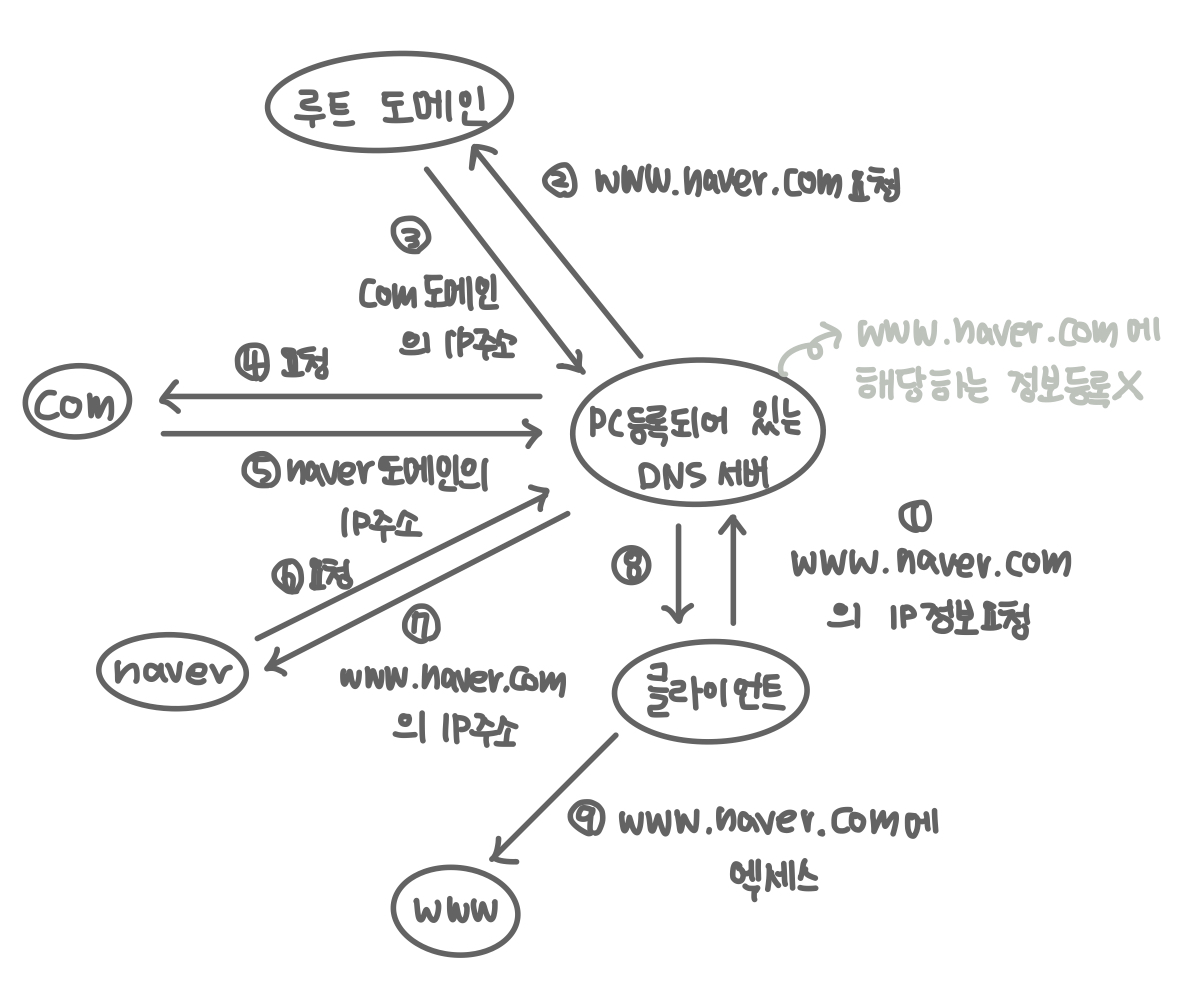 루트 도메인
② www.naver.com 요청
③
com 도메인
의 IP주소
www.naver.com에
해당하는 정보등록X
④ 요청
com
PC등록되어 있는
DNS 서버
⑤ naver 도메인의
IP주소
①
www.naver.com
의 IP정보요청
⑥ 요청
⑧
⑦
naver
www.naver.com
의 IP주소
클라이언트
⑨ www.naver.com에
엑세스
www